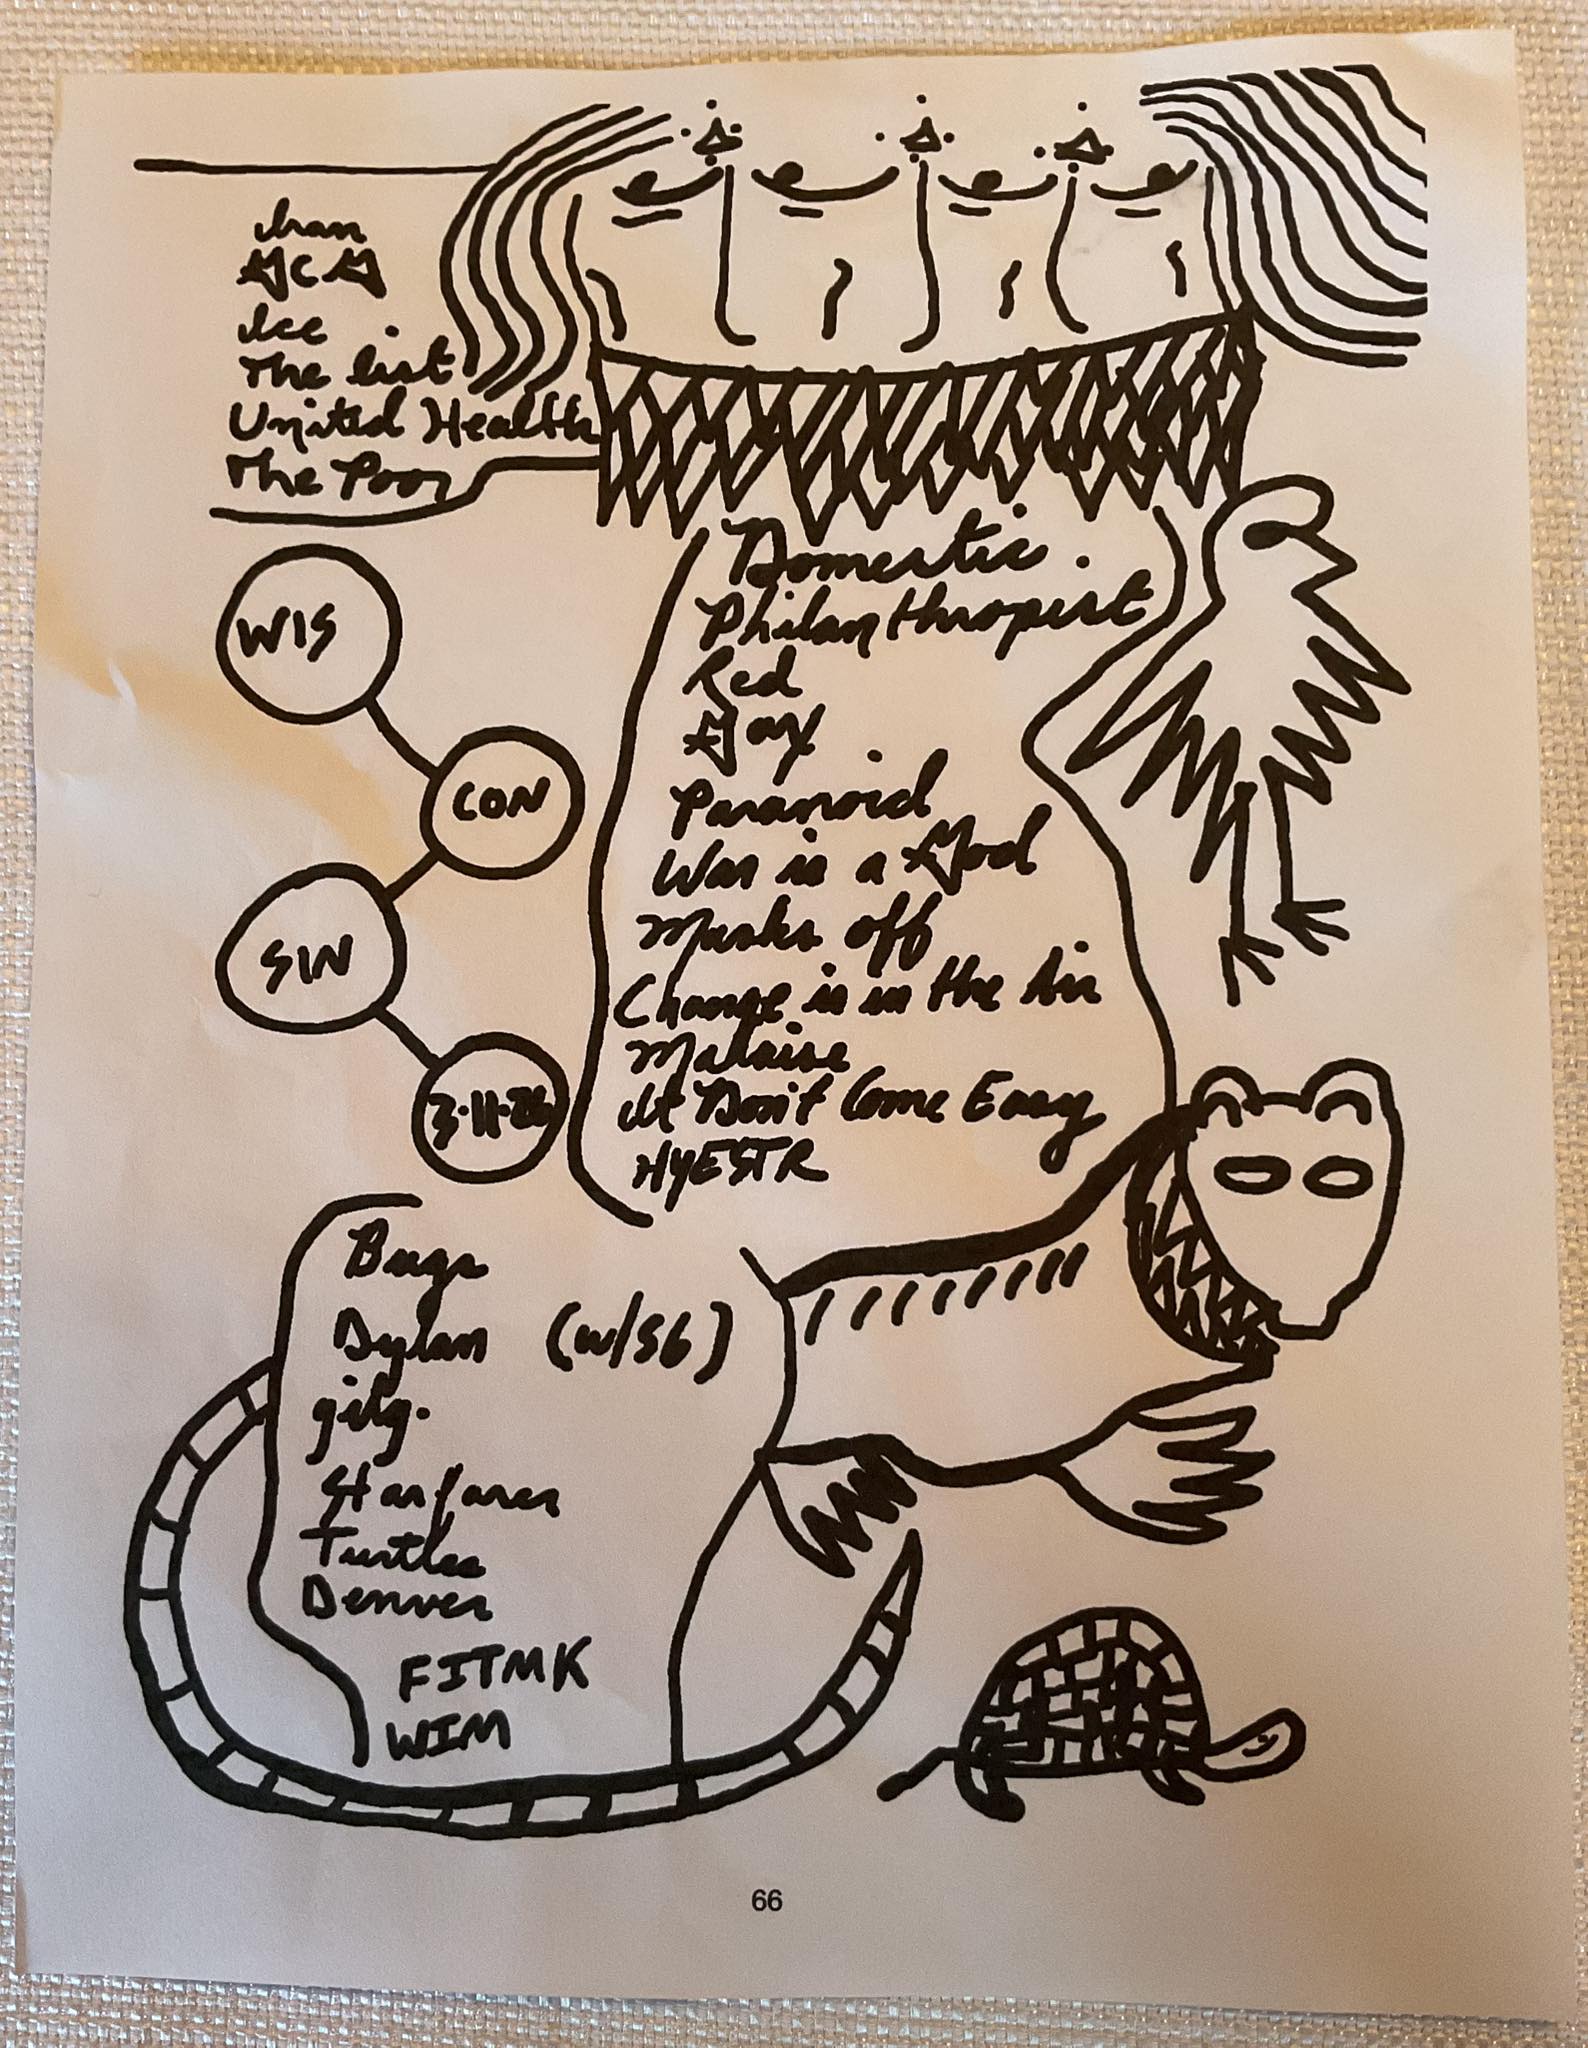 Iran
GCG
Ice
The list
United Health
The Poor
WIS
CON
SIN
3-11-26
Domestic
Philanthropist
Red
Gox
Paranoid
War is a God
Masks off
Change is in the Air
Malaise
It Don't Come Easy
HYESTR
Bugs
Dylan (w/56)
gilg.
Starfarer
Turtles
Denver
FITMK
WIM
66